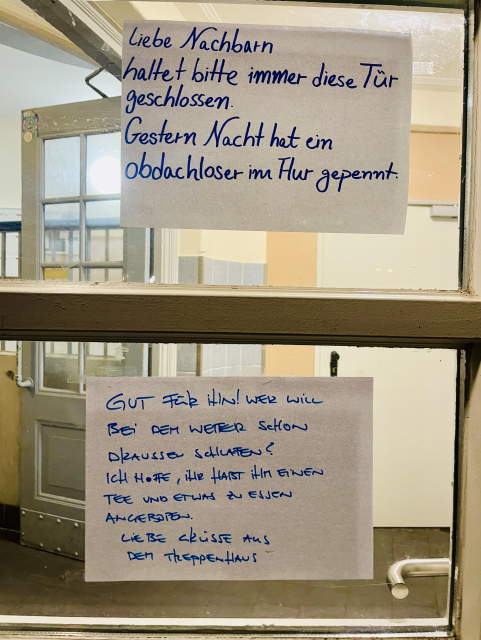 Liebe Nachbarn
haltet bitte immer diese Tür
geschlossen.
Gestern Nacht hat ein
obdachloser im Flur gepennt.
GUT FÜR IHN! WER WILL
BEI DEM WETTER SCHON
DRAUSSEN SCHLAFEN?
ICH HOFFE, IHR HABT IHM EINEN
TEE UND ETWAS ZU ESSEN
ANGEBOTEN.
LIEBE GRÜSSE AUS
DEM TREPPENHAUS